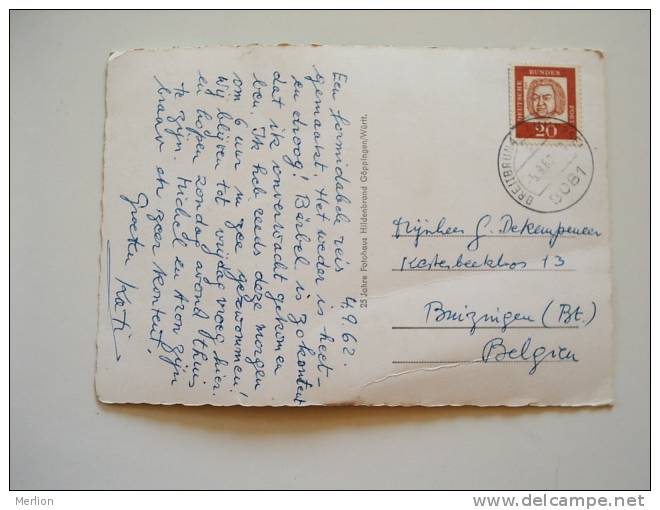 4.9.62.
Een formidabele reis
gemaakt. Het weder is heet
en droog! Bärbel is zo kontent
dat ik onverwacht gekomen
ben. Ik heb reeds deze morgen
om 6 uur in zee gezwommen!
Wij blijven tot vrijdag vroeg hier.
en hopen zondag avond thuis
te zijn. Michel en Aron zijn
braav en zeer kontent.
Groeten Kati
25 Jahre Fotohaus Hildenbrand Göppingen/Württ.
DEUTSCHE BUNDES POST
20
BREITBRUNN
8081
Mijnheer G. Dekempeneer
Kesterbeeklos 13
Buizingen (Bt.)
Belgien
Merlion
http://www.delcampe.net